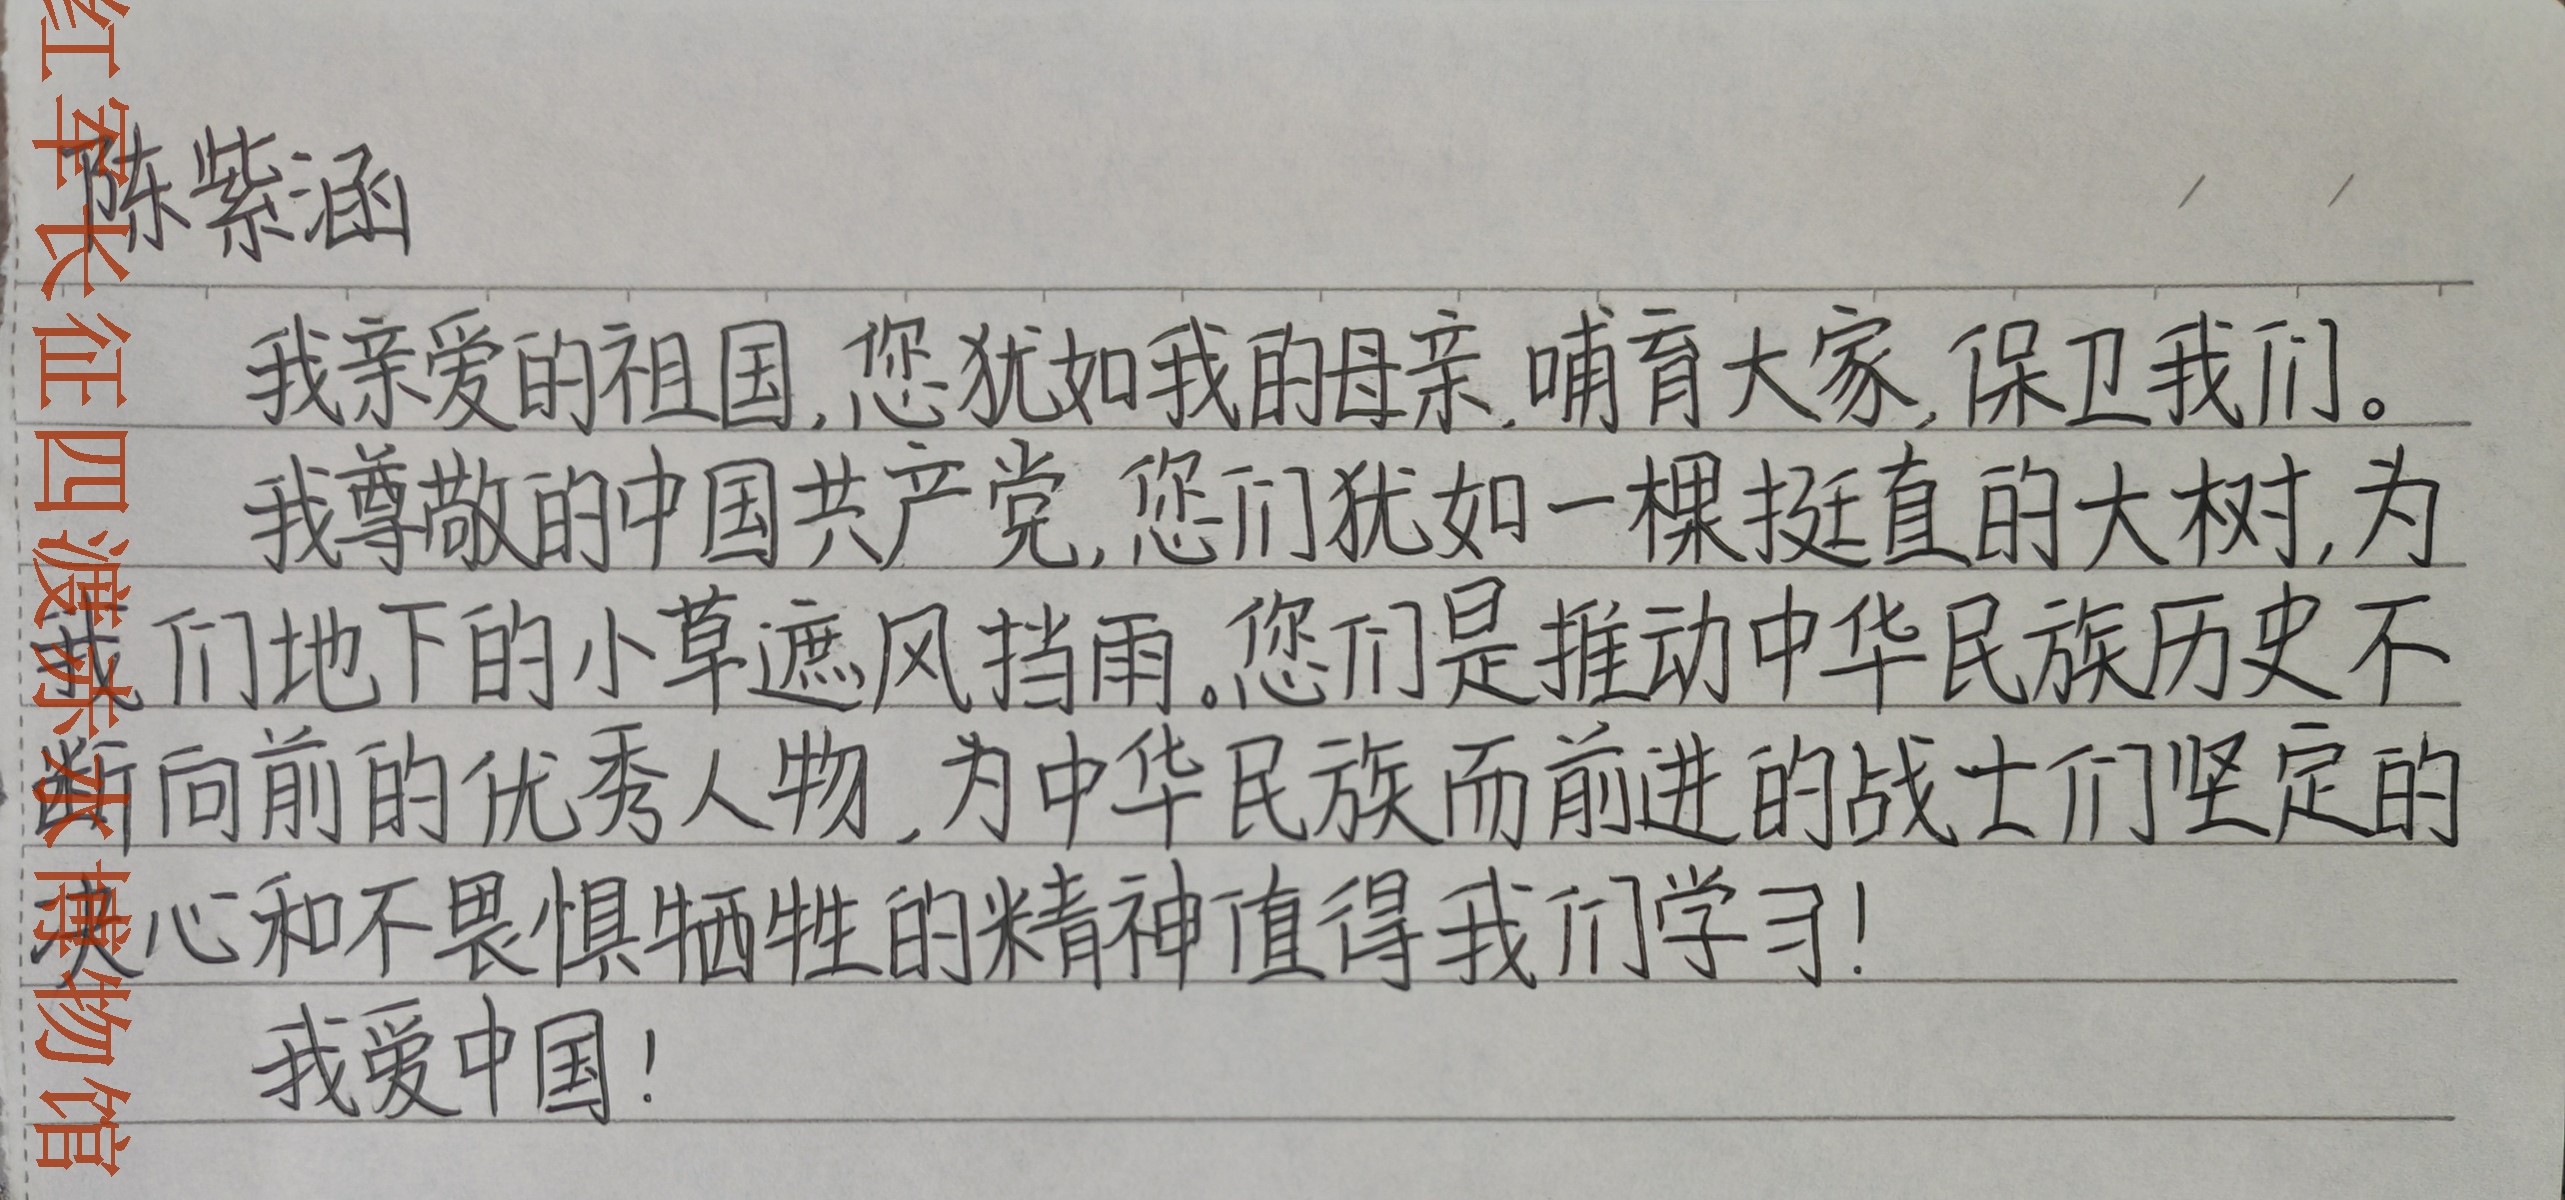 陈紫涵
我亲爱的祖国,您犹如我的母亲,哺育大家,保卫我们。
我尊敬的中国共产党,您们犹如一棵挺直的大树,为
我们地下的小草遮风挡雨。您们是推动中华民族历史不
断向前的优秀人物,为中华民族而前进的战士们坚定的
决心和不畏惧牺牲的精神值得我们学习!
我爱中国!
红军长征四渡赤水博物馆